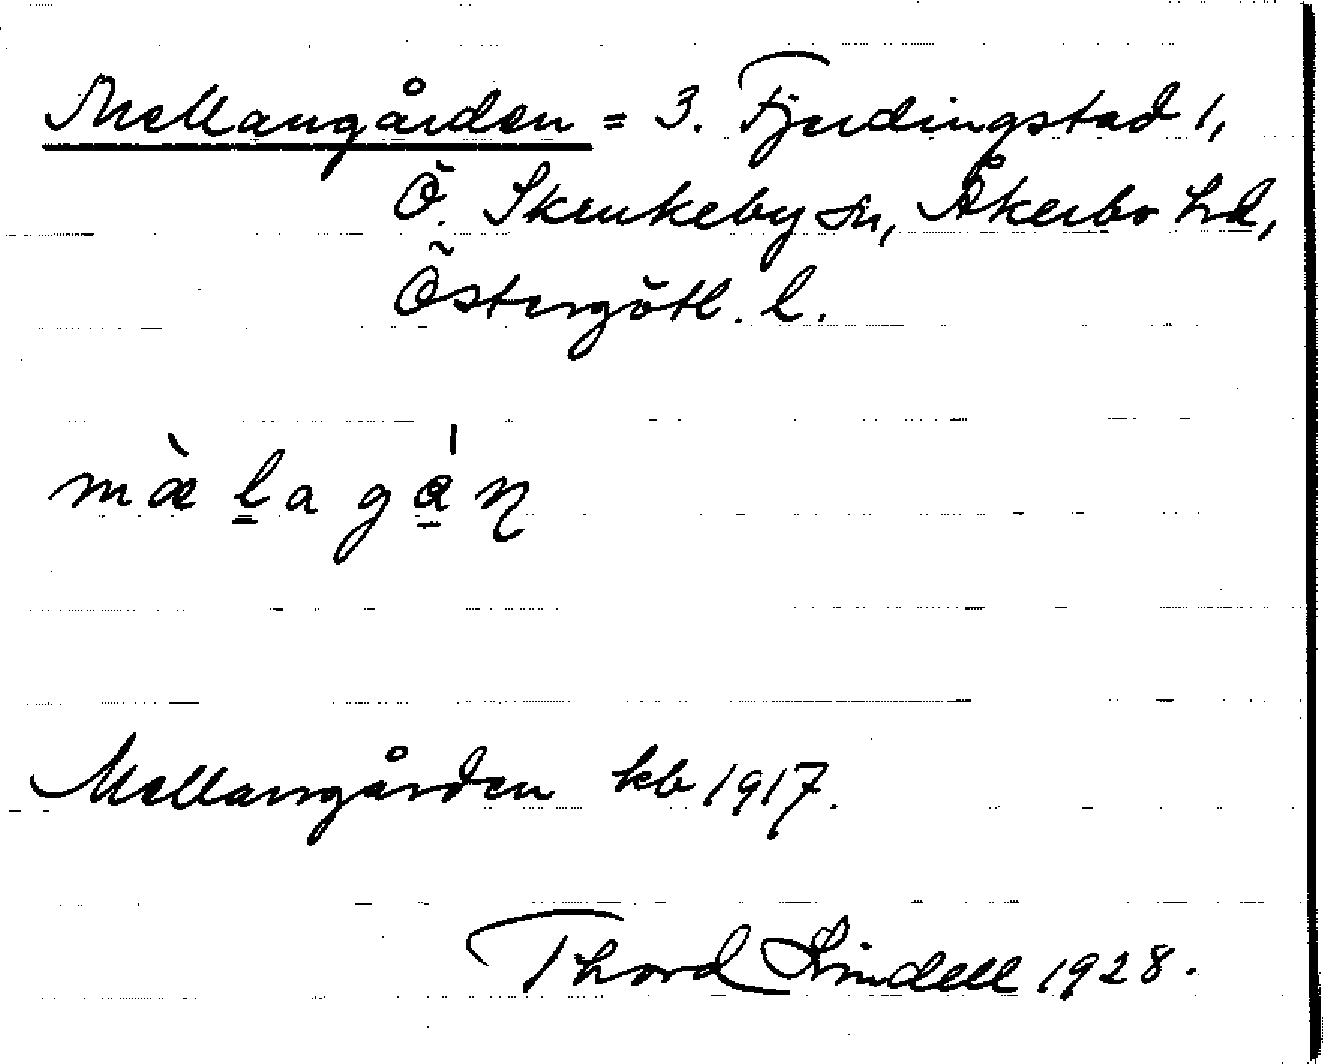 Mellangården = 3. Fjerdingstad 1,
Ö. Skrukeby sn, Åkerbo hd,
Östergötl. l.
mæ̀l̠agá̠n
Mellangården kb 1917.
Thord Lindell 1928.